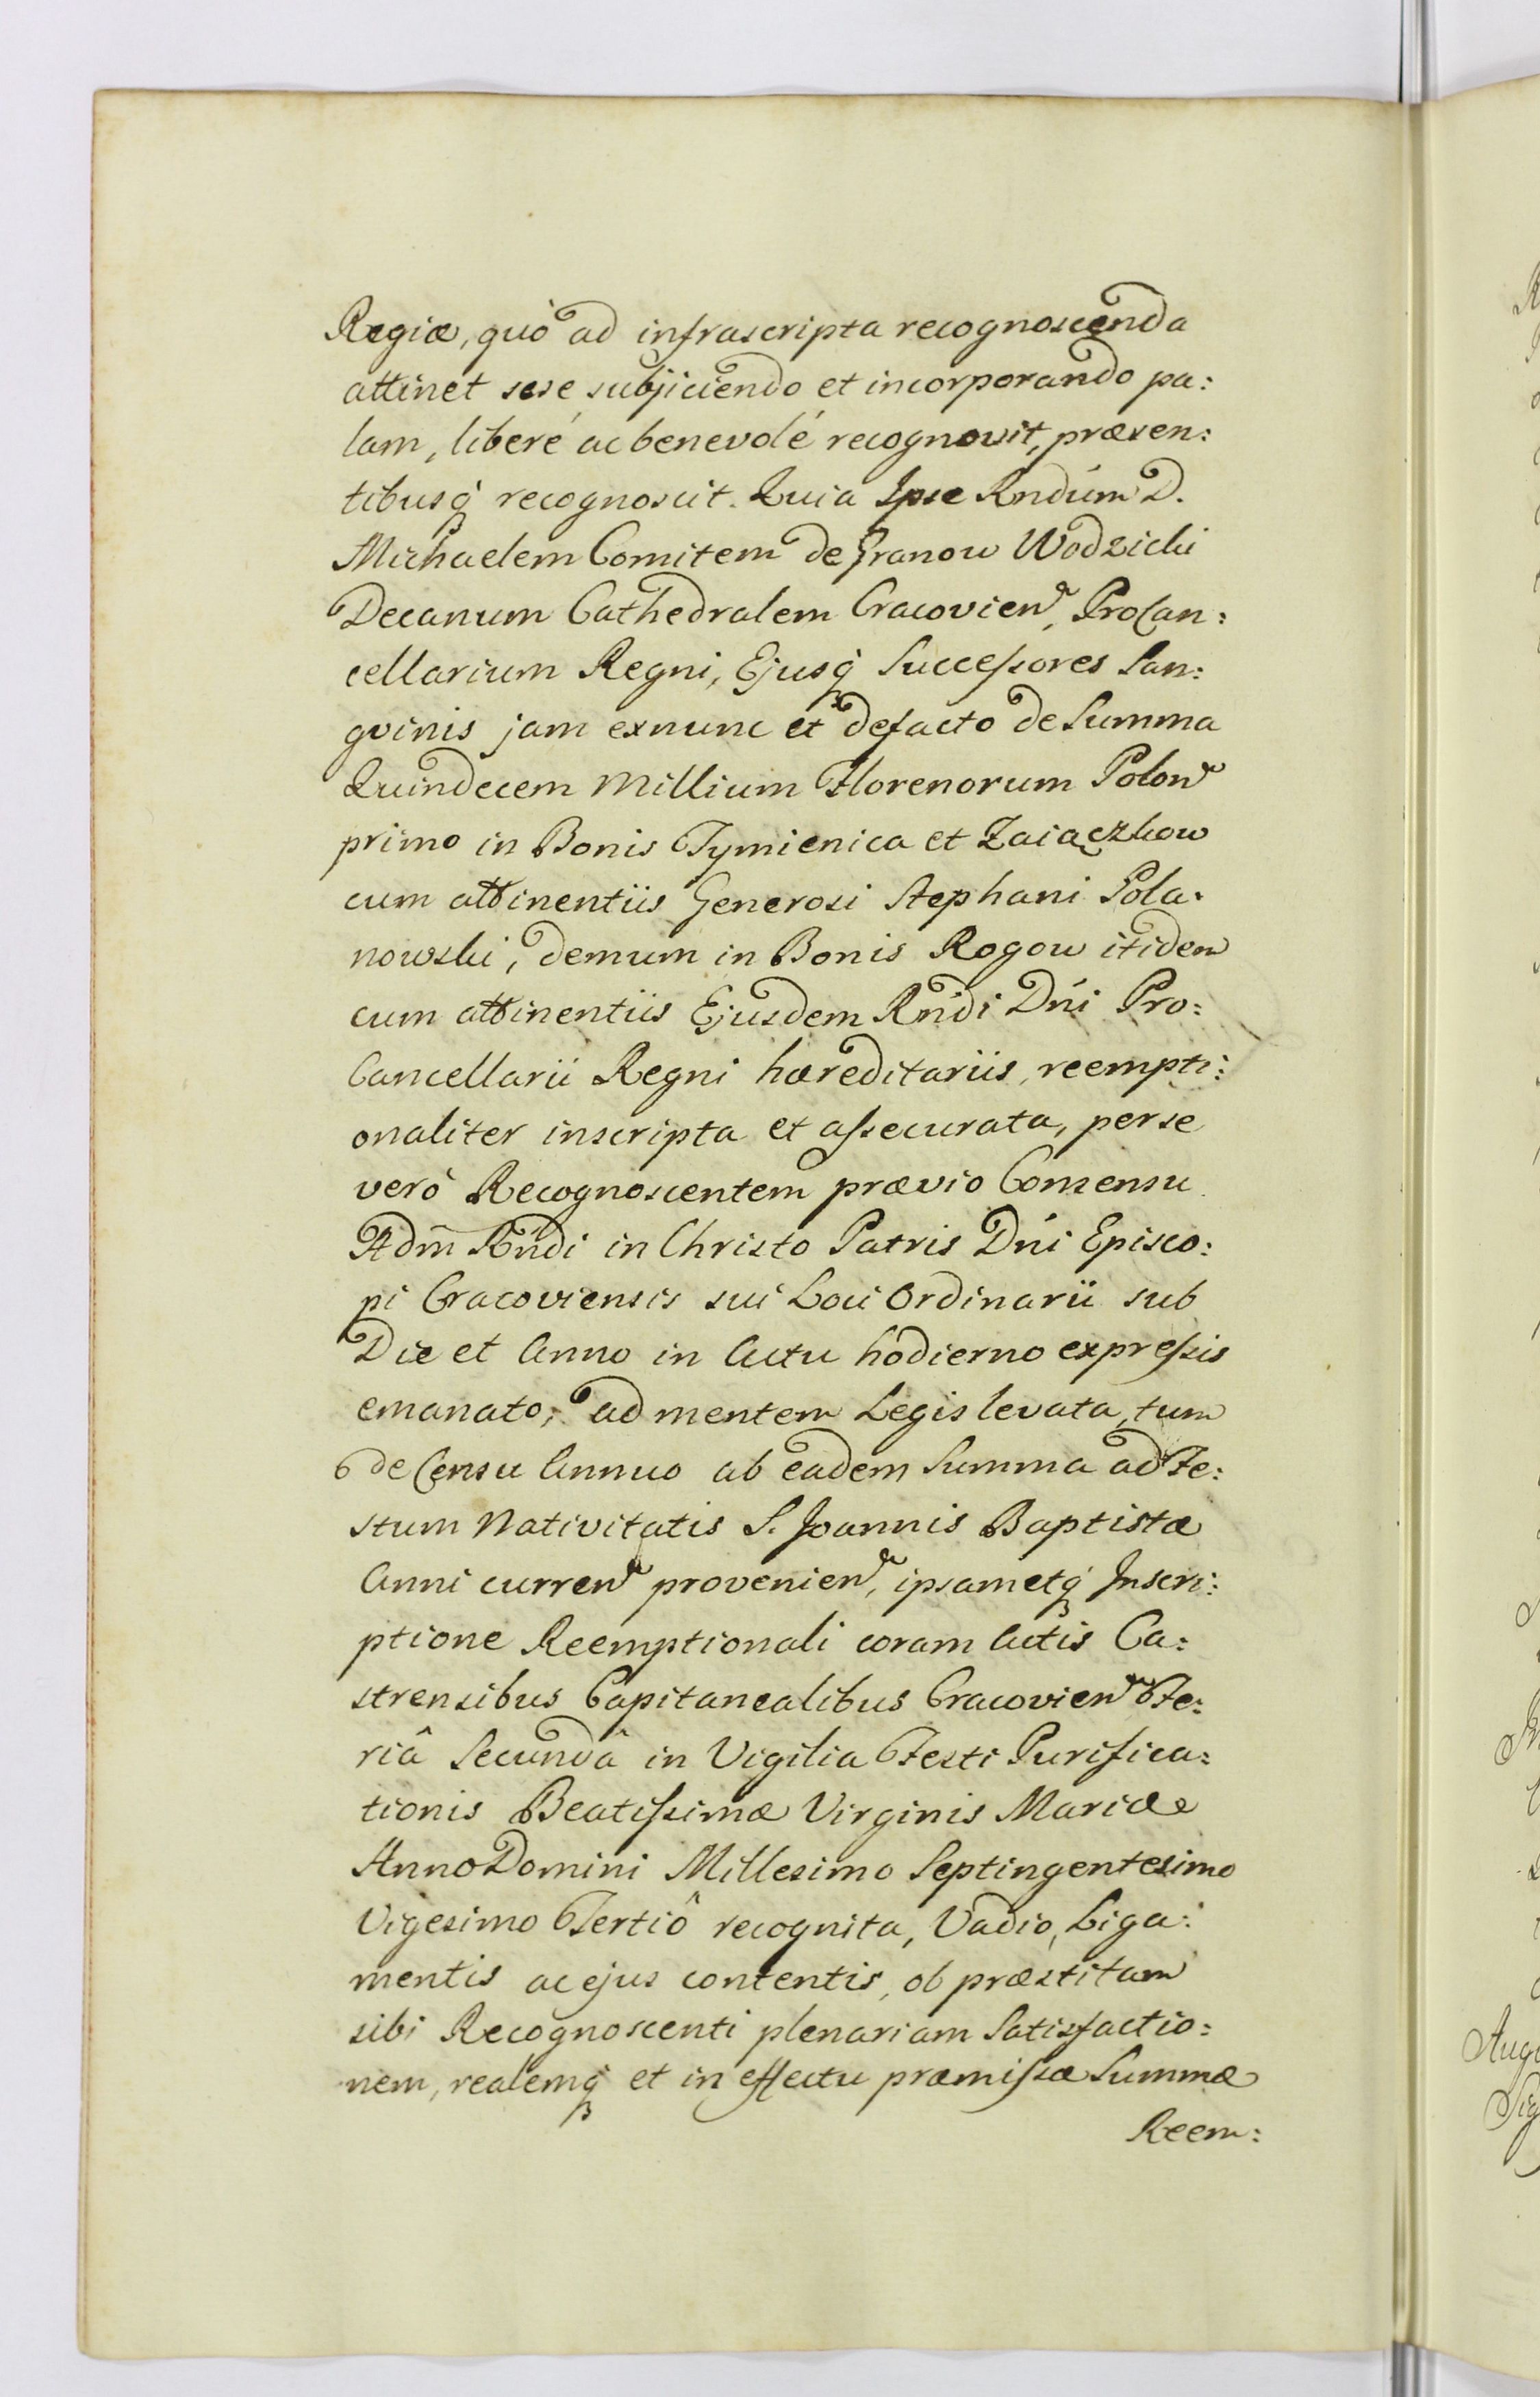 Regiæ, quò ad infrascripta recognoscenda
attinet sese subjiciendo et incorporando pa:
lam, liberé ac benevolé recognovit, præsen:
tibusq́ recognoscit. Quia Ipse Rndúm D.
Michaelem Comitem de Granow Wodzicki
Decanum Cathedralem Cracovien, ProCan:
cellarium Regni, Ejusq́ Successores San:
gvinis jam exnunc et defacto de Summa
Quindecem Millium Florenorum Polon
primo in Bonis Tymienica et Zaiączkow
cum attinentiis Generosi Stephani Pola:
nowski, demum in Bonis Rogow itidem
cum attinentiis Ejusdem Rńdi Dńi Pro:
Cancellarii Regni hæreditariis, reempti:
onaliter inscripta et assecurata, per se
verò Recognoscentem prævio Consensu
Adm̃ Rńdi in Christo Patris Dńi Episco:
pi Cracoviensis sui Loci Ordinarii sub
Die et Anno in Actu hodierno expressis
emanato, ad mentem Legis levata, tum
de Censu Annuo ab eadem Summa ad Fe:
stum Nativitatis S. Joannis Baptistæ
Anni curren provenien, ipsametq́ Inscri:
ptione Reemptionali coram Actis Ca:
strensibus Capitanealibus Cracovien Fe:
riâ Secundâ in Vigilia Festi Purifica:
tionis Beatissimæ Virginis Mariæ
Anno Domini Millesimo Septingentesimo
Vigesimo Tertiô recognita, Vadio, Liga:
mentis ac ejus contentis, ob præstitam
sibi Recognoscenti plenariam Satisfactio:
nem, realemq́ et in effectu præmissæ Summæ
Reem: